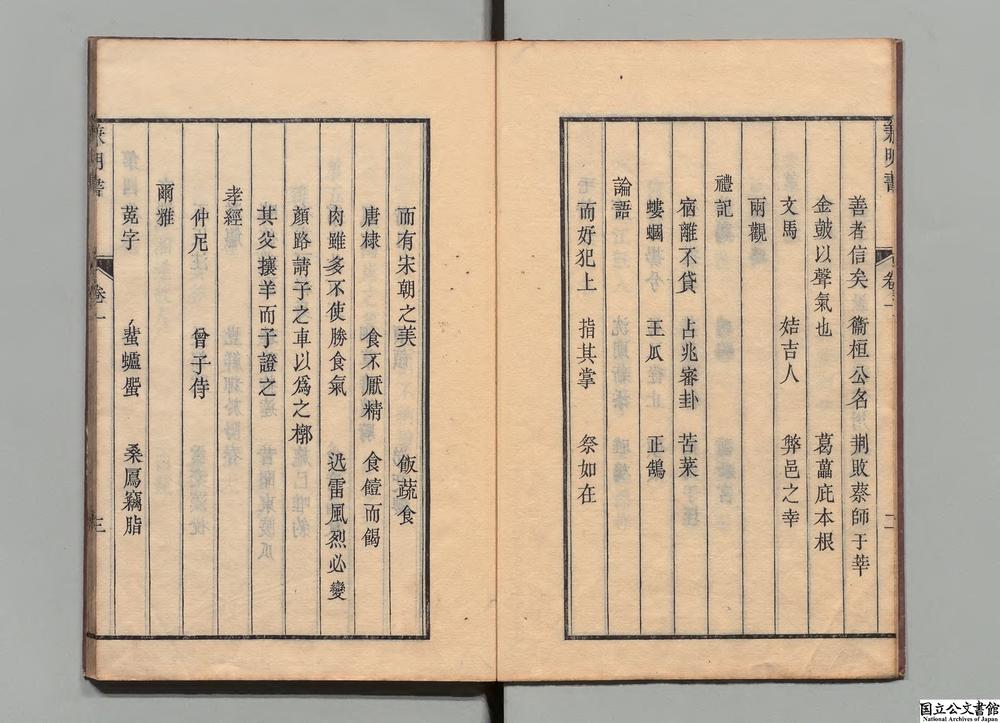 兼明書
卷一
二
善者信矣 衞桓公名 荆敗蔡師于莘
金鼓以聲氣也 葛藟庇本根
文馬 姞吉人 弊邑之幸
兩觀
禮記
宿離不貸 占兆審卦 苦菜
螻蟈 王瓜 正鵠
論語
而好犯上 指其掌 祭如在
而有宋朝之美 飯蔬食
唐棣 食不厭精 食饐而餲
肉雖多不使勝食氣 迅雷風烈必變
顏路請子之車以爲之槨
其父攘羊而子證之
孝經
仲尼 曾子侍
爾雅
蒐字 蜚蠦蜰 桑鳸竊脂
兼明書
卷一
三
国立公文書館
National Archives of Japan